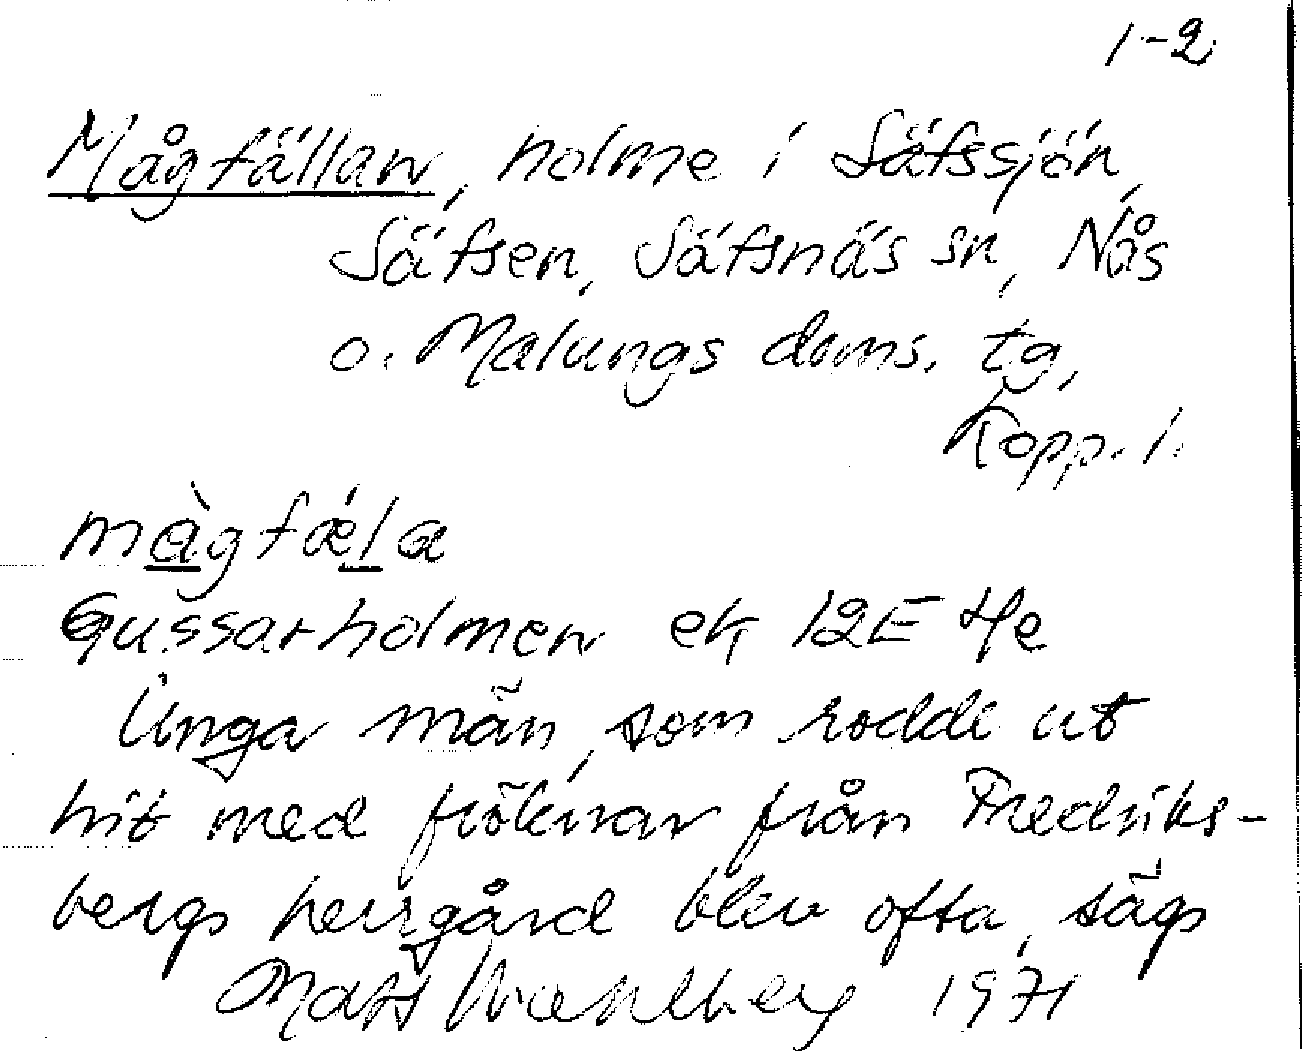 1-2
Mågfällan, holme i Säfssjön,
Säfsen, Säfsnäs sn, Nås
o. Malungs doms. tg,
Kopp. l.
màgfæ´la
Gussarholmen ek 12E 4e
Unga män, som rodde ut
hit med fröknar från Fredriks-
bergs herrgård blev ofta, sägs
Mats Wahlberg 1971